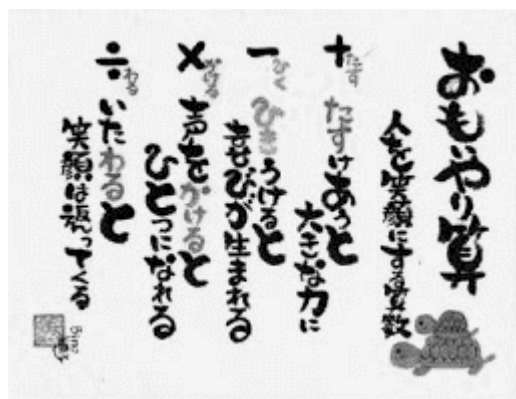 おもいやり算
人を笑顔にする算数
+ たす
たすけあうと
大きな力に
− ひく
ひきうけると
喜びが生まれる
× かける
声をかけると
ひとつになれる
÷ わる
いたわると
笑顔は返ってくる